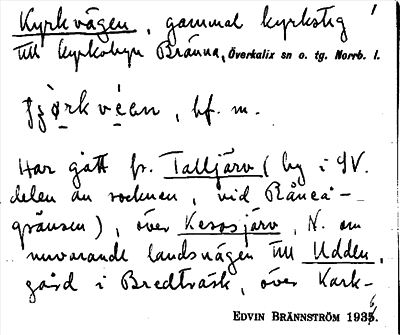 Kyrkvägen, gammal kyrkstig
till kyrkobyn Bränna, Överkalix sn o. tg. Norrb. l.
bf. m.
Har gått fr. Talljärv (by i SV.
delen av socknen, vid Råneå-
gränsen), över Kesasjärv, N. om
nuvarande landsvägen till Udden,
gård i Bredträsk, över Kark-
EDVIN BRÄNNSTRÖM 1936.